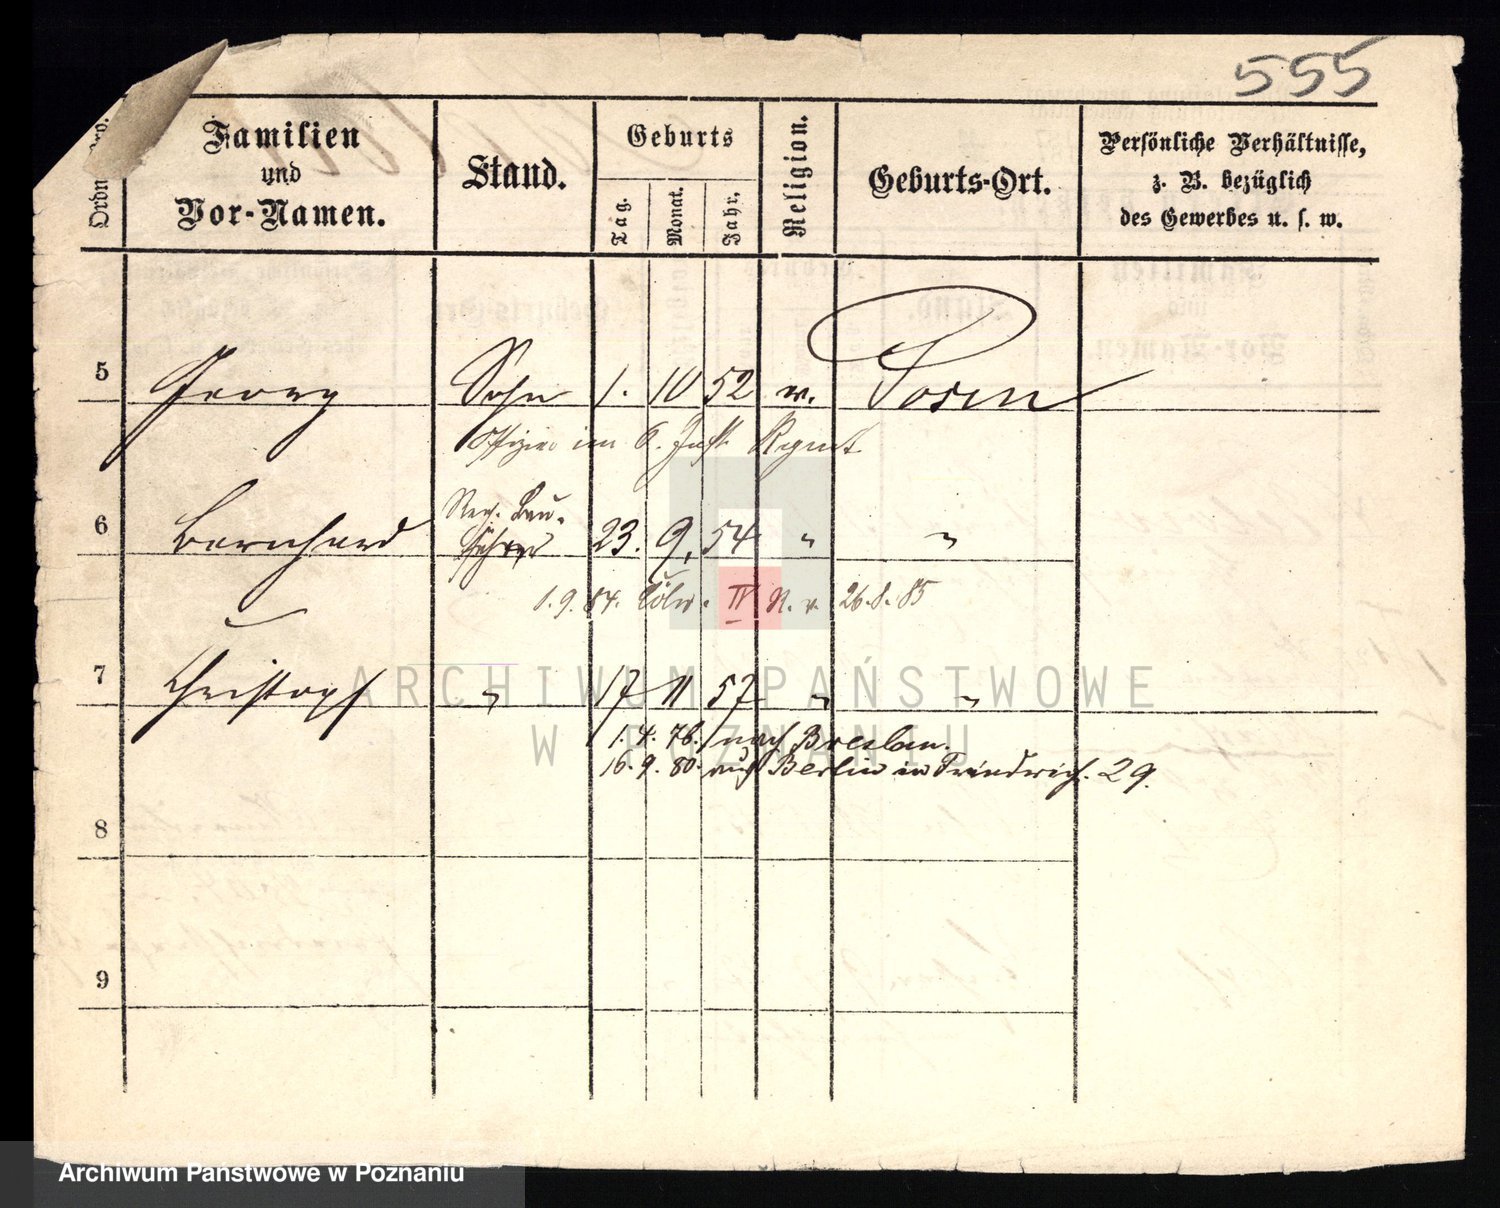 555
Familien und Vor-Namen.
Stand.
Geburts
Tag. Monat. Jahr.
Religion.
Geburts-Ort.
Persönliche Verhältnisse, z. B. bezüglich des Gewerbes u. s. w.
5 Georg Sohn 1. 10 52 ev. Posen
Offizier im 6. Inft Regmt
6 Bernhard Reg. Bau- führer 23. 9. 54 " "
1. 9. 84. Cöln. IV N. v. 26. 8. 85
7 Christoph " 17 11 57 " "
1. 4. 76. nach Breslau.
16. 9. 80. nach Berlin in Friedrich. 29.
8
9
ARCHIWUM PAŃSTWOWE
W POZNANIU
Archiwum Państwowe w Poznaniu